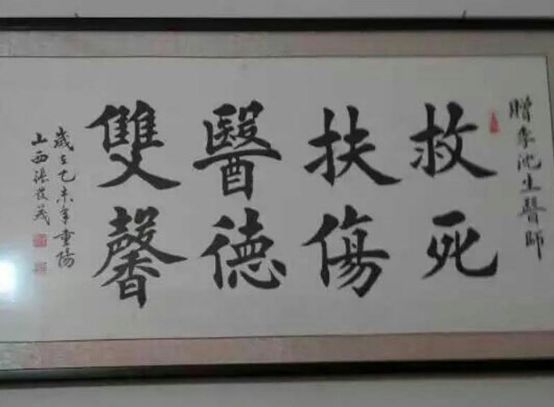 贈李沈生醫師
救死
扶傷
醫德
雙馨
歲在乙未年重陽
山西張俊義